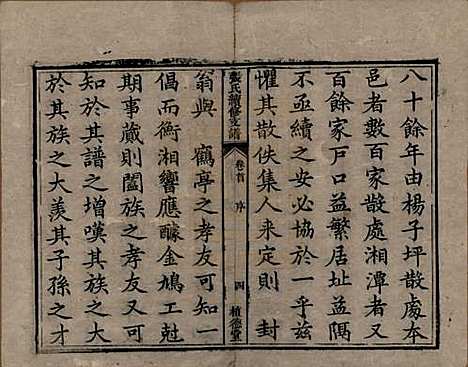 八十餘年由楊子坪散處本
邑者數百家散處湘潭者又
百餘家戶口益繁居址益隅
不亟續之安必協於一乎茲
懼其散佚集人來定則　封
氏續修支譜
卷首　序　四　植德堂
翁與　鶴亭之孝友可知一
倡而衡湘響應醵金鳩工尅
期事蕆則闔族之孝友又可
知於其譜之增嘆其族之大
於其族之大羨其子孫之才